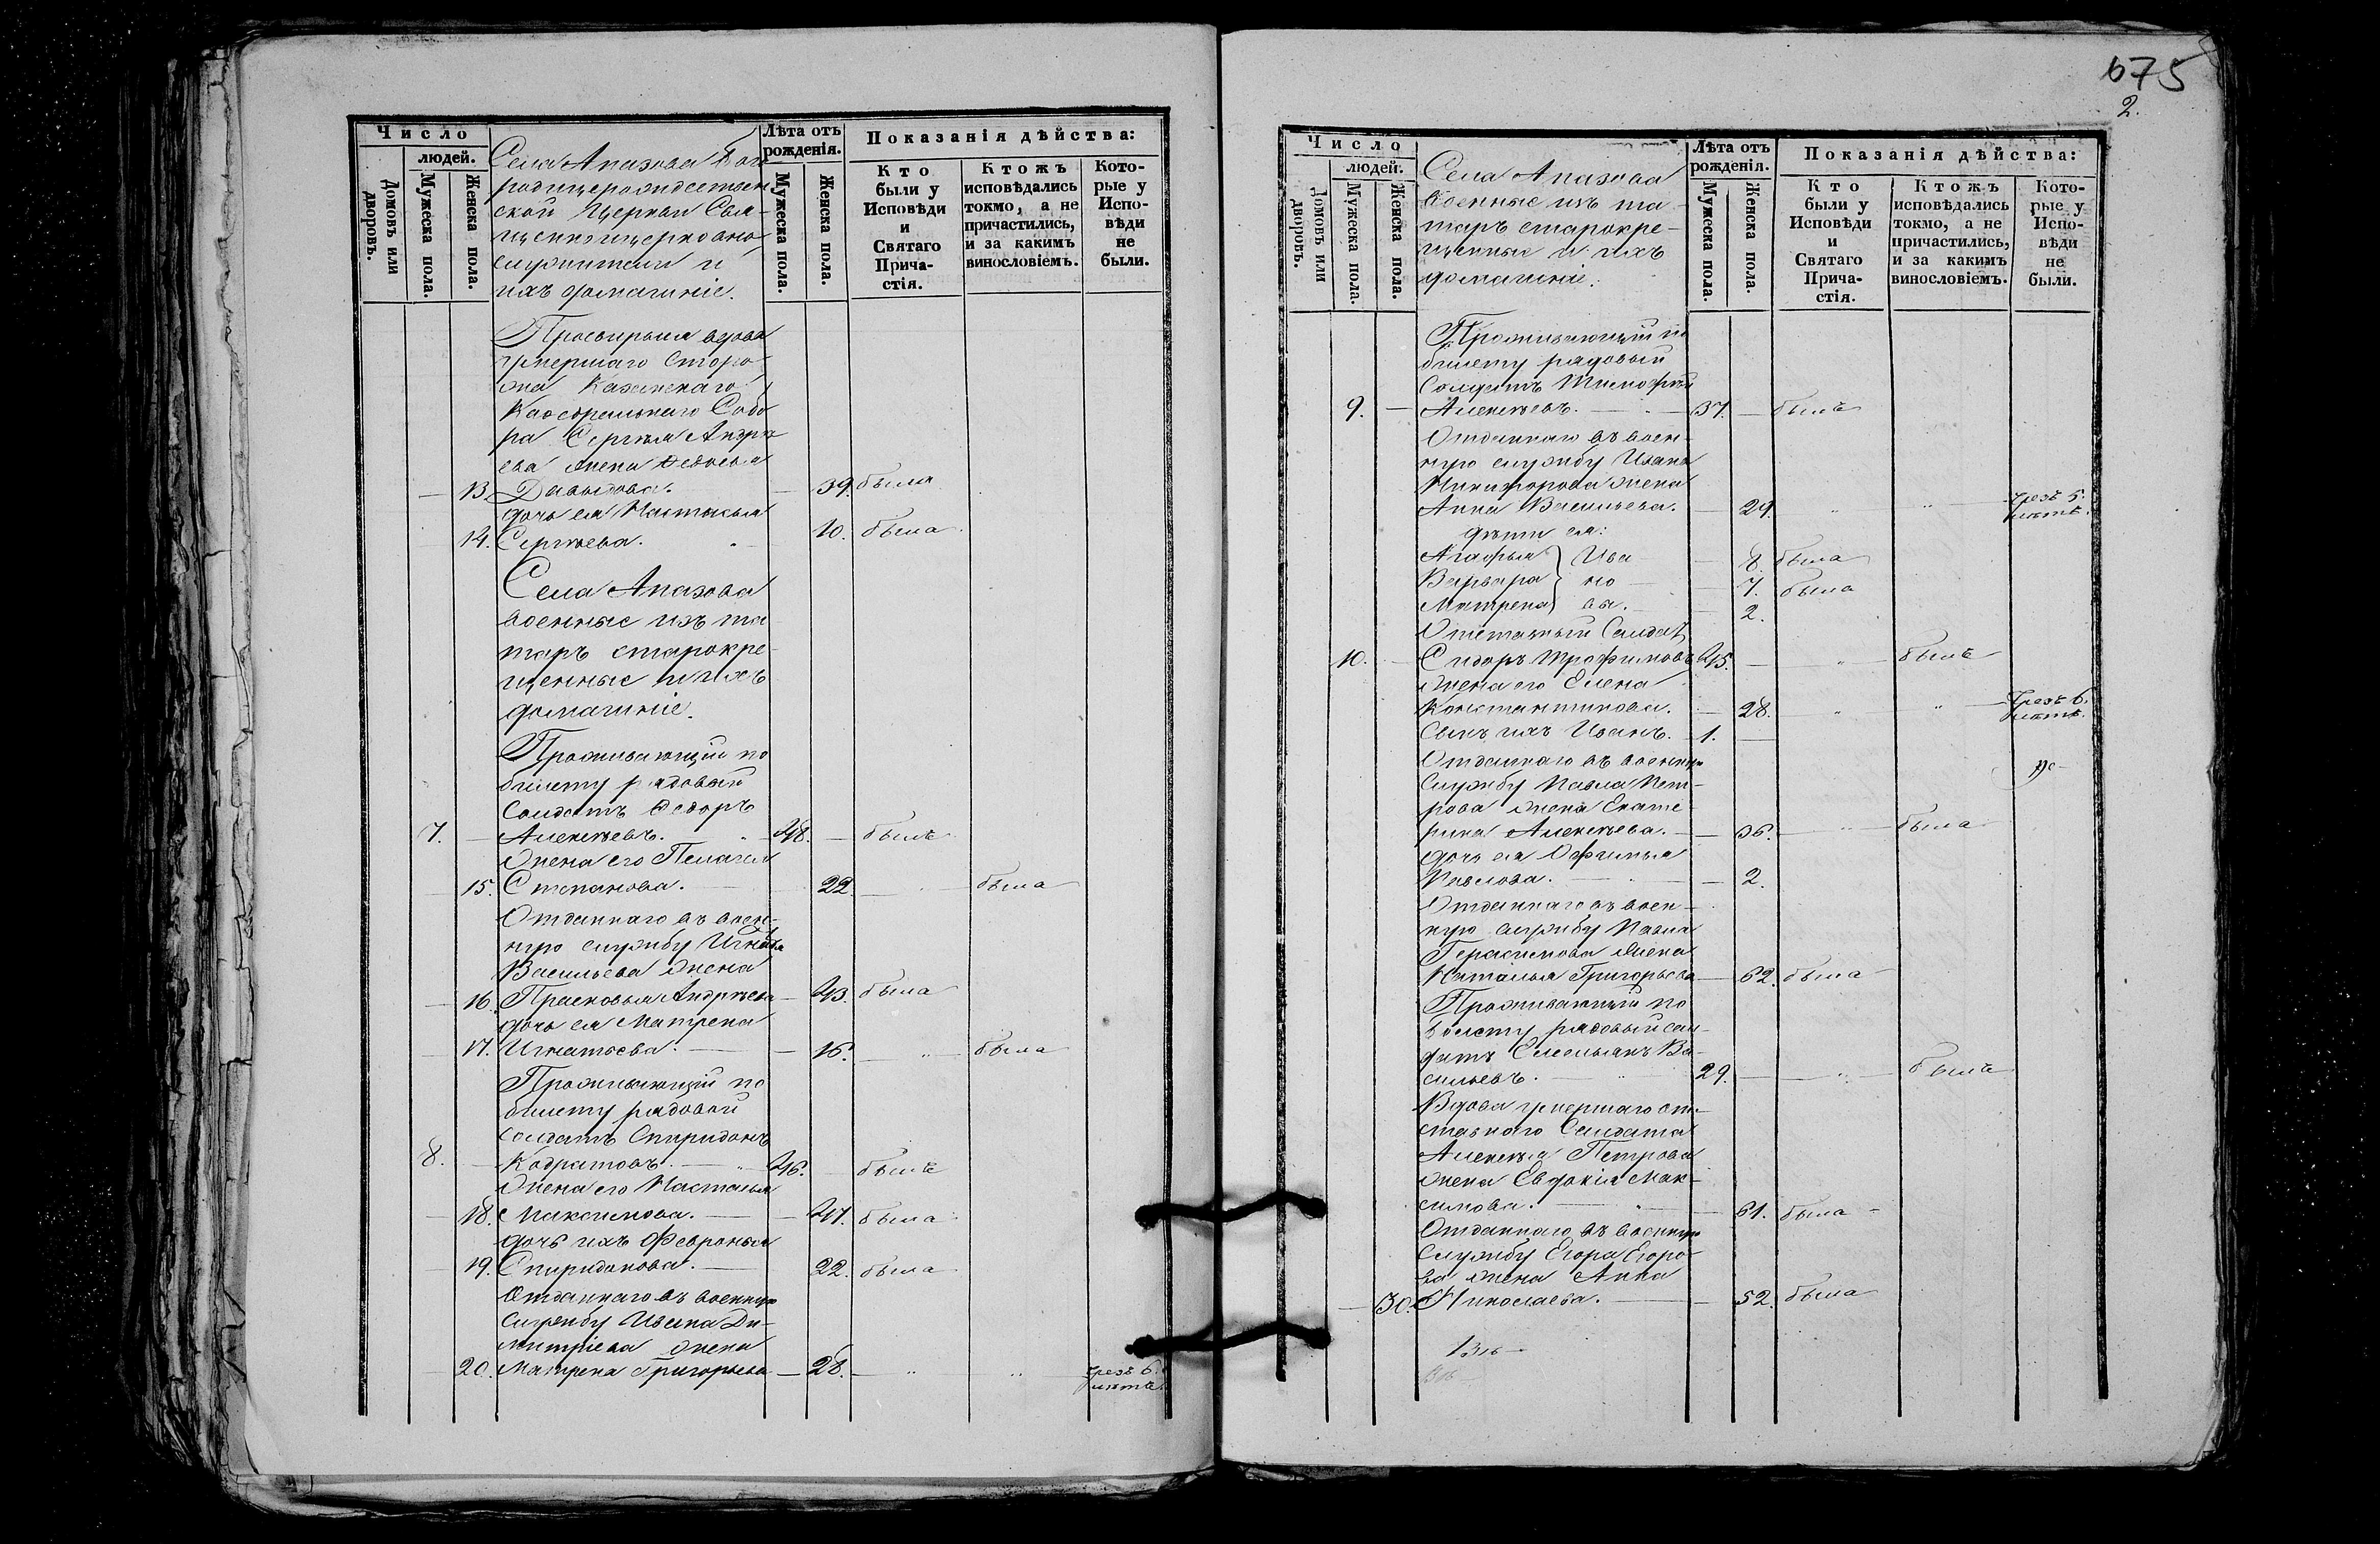 Число
людей.
Домовъ или дворовъ.
Мужеска пола.
Женска пола.
Села Апазова Бого
родицерождествен
ской Церкви Свя-
щенноцерковно
служители и
ихъ домашніе.
Лѣта отъ рожденія.
Мужеска пола.
Женска пола.
Показанія дѣйства:
Кто были у Исповѣди и Святаго Прича-стія.
Ктожъ исповѣдались токмо, а не причастились, и за какимъ винословіемъ.
Кото-рые у Испо-вѣди не были.
Просвирыя вдова
умершаго Сторо
жа Казанскаго
Каѳедральнаго Собо
ра Сергѣя Андрѣ
ева жена Ѳедосья
13. Давыдова. — 39. была
дочь ея Настасья
14. Сергѣева. 10. была
Села Апазова
военные изъ та
таръ старокре
щенные и ихъ
домашніе.
Проживающій по
билету рядовый
Солдатъ Ѳедоръ
7. — Алексѣевъ. — 48. — былъ
Жена его Пелагея
— 15. Степанова. — 22. — была
Отданнаго въ воен-
ную службу Игнатья
Васильева жена
— 16. Прасковья Андрѣева — 43. была
дочь ея Матрена
— 17. Игнатьева. — 16. — „ — была
Проживающій по
билету рядовой
солдатъ Спиридонъ
8. — Кодратовъ. — „ 46. былъ
Жена его Настасья
— 18. Максимова. — 47. была
дочь ихъ Февронья
— 19. Спиридонова. — 22. была
Отданнаго въ военную
Службу Ивана Ди-
митріева жена
20. Матрена Григорьева — 28. — „ „ — Чрезъ 6. лѣтъ.
675
2.
Число
людей.
Домовъ или дворовъ.
Мужеска пола.
Женска пола.
Села Апазова
военные изъ та
таръ старокре-
щенные и ихъ
домашніе.
Лѣта отъ рожденія.
Мужеска пола.
Женска пола.
Показанія дѣйства:
Кто были у Исповѣди и Святаго Прича-стія.
Ктожъ исповѣдались токмо, а не причастились, и за какимъ винословіемъ.
Кото-рые у Испо-вѣди не были.
Проживающій по
билету рядовый
Солдатъ Тимофей
9. — Алексѣевъ. — 37. — былъ
Отданнаго въ воен-
ную службу Ивана
Никифорова жена
Анна Васильева. — 29. „ „ — Чрезъ 5. лѣтъ.
дѣти ея:
Агафья } Ива — 8. была
Варвара } но — 7. была
Матрена } вы. — 2.
Отставный Солдатъ
10. — Сидоръ Трофимовъ 45. — „ — былъ
Жена его Елена
Константинова. — 28. „ „ — Чрезъ 6. лѣтъ.
Сынъ ихъ Иванъ. — 1. —
Отданнаго въ военную
Службу Павла Пет-
рова жена Екате
рина Алексѣева. — 36. — „ — была
дочь ея Офимья
Павлова. — 2.
Отданнаго въ воен-
ную службу Павла
Герасимова жена
Наталья Григорьева — 62. была
Проживающій по
билету рядовый сол-
датъ Емельянъ Ва-
сильевъ. — 29. — „ былъ
Вдова умершаго от-
ставнаго Солдата
Алексѣя Петрова
жена Евдокія Мак-
симова. — 61. была —
Отданнаго въ военную
Службу Егора Егоро-
ва жена Анна
— 30. Николаева. — 52. была